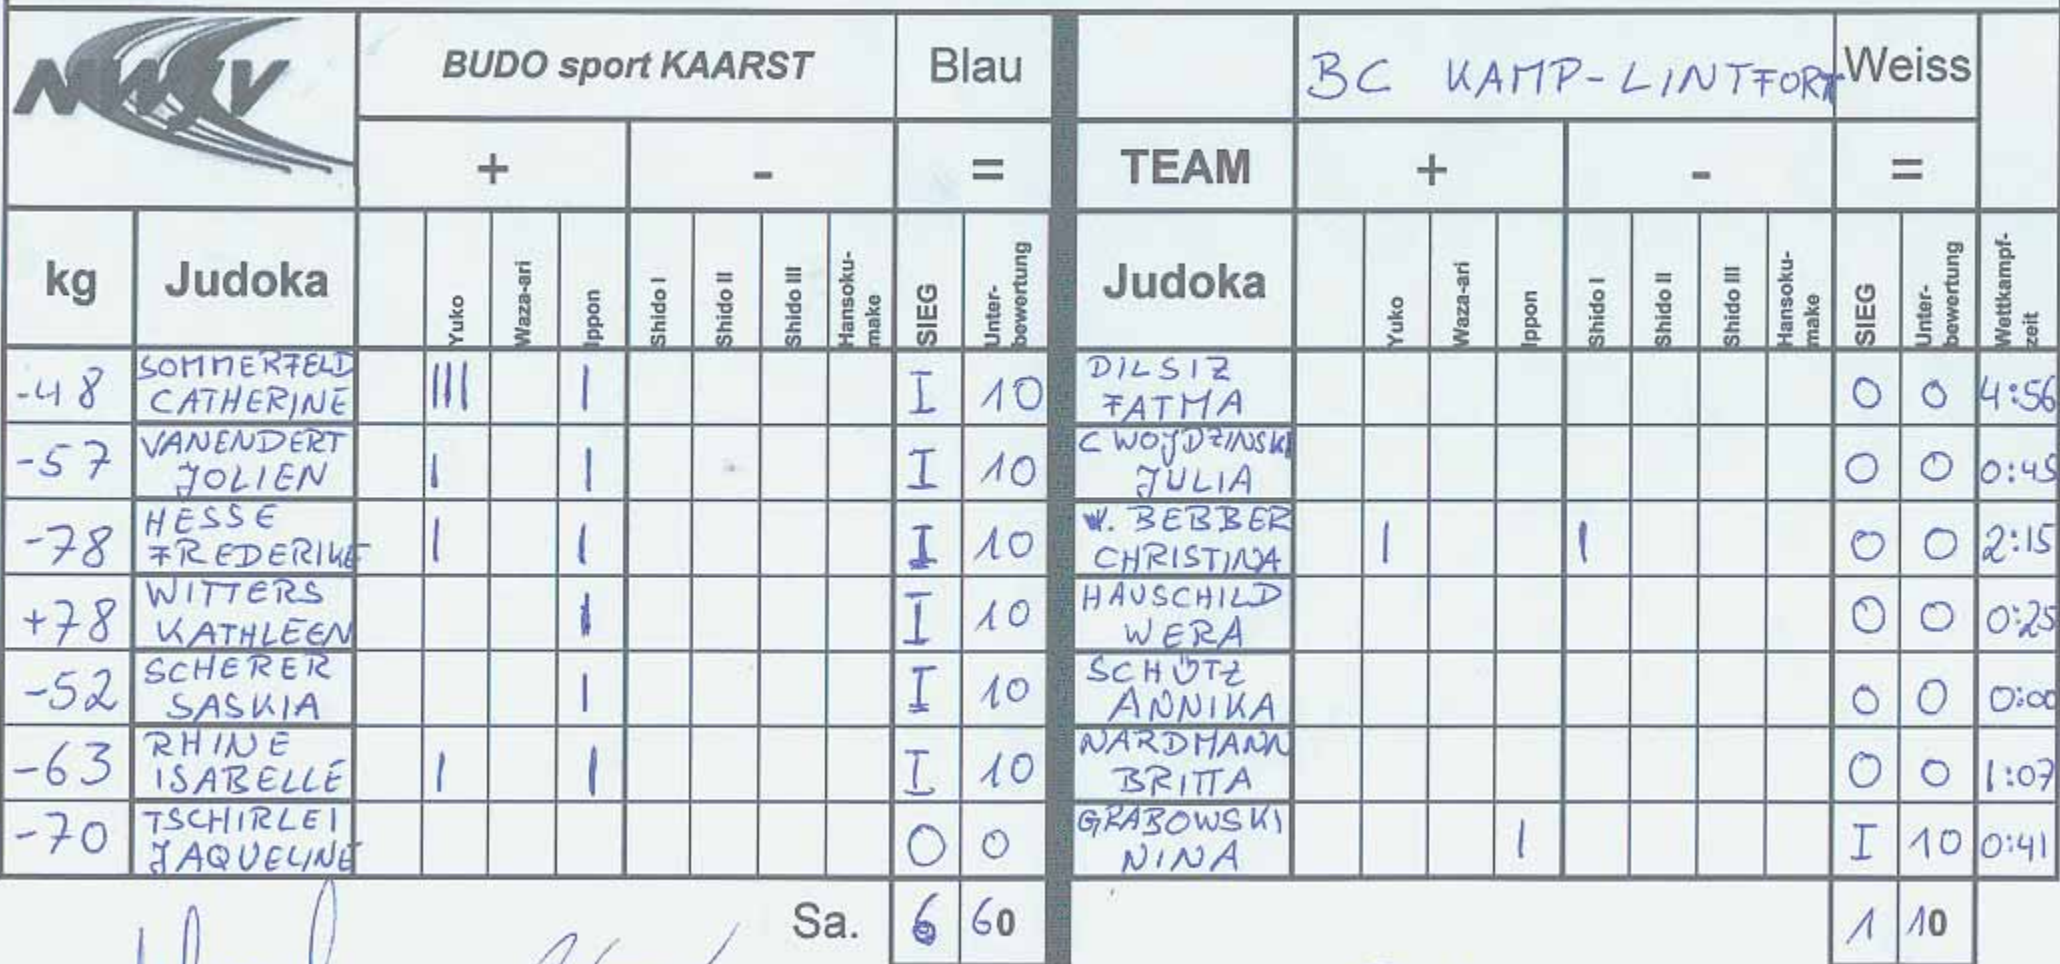 NWJV BUDO sport KAARST Blau BC KAMP-LINTFORT Weiss
+ - = TEAM + - =
kg Judoka Yuko Waza-ari Ippon Shido I Shido II Shido III Hansoku-make SIEG Unter-bewertung Judoka Yuko Waza-ari Ippon Shido I Shido II Shido III Hansoku-make SIEG Unter-bewertung Wettkampf-zeit
-48 SOMMERFELD CATHERINE III I I 10 DILSIZ FATMA 0 0 4:56
-57 VANENDERT JOLIEN I I I 10 CWOJDZINSKI JULIA 0 0 0:45
-78 HESSE FREDERIKE I I I 10 V. BEBBER CHRISTINA I I 0 0 2:15
+78 WITTERS KATHLEEN I I 10 HAUSCHILD WERA 0 0 0:25
-52 SCHERER SASKIA I I 10 SCHÜTZ ANNIKA 0 0 0:00
-63 RHINE ISABELLE I I I 10 NARDMANN BRITTA 0 0 1:07
-70 TSCHIRLEI JAQUELINE 0 0 GRABOWSKI NINA I I 10 0:41
Sa. 6 60 1 10